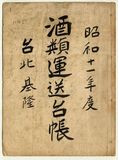 昭和十一年度
酒類運送台帳
台北基隆